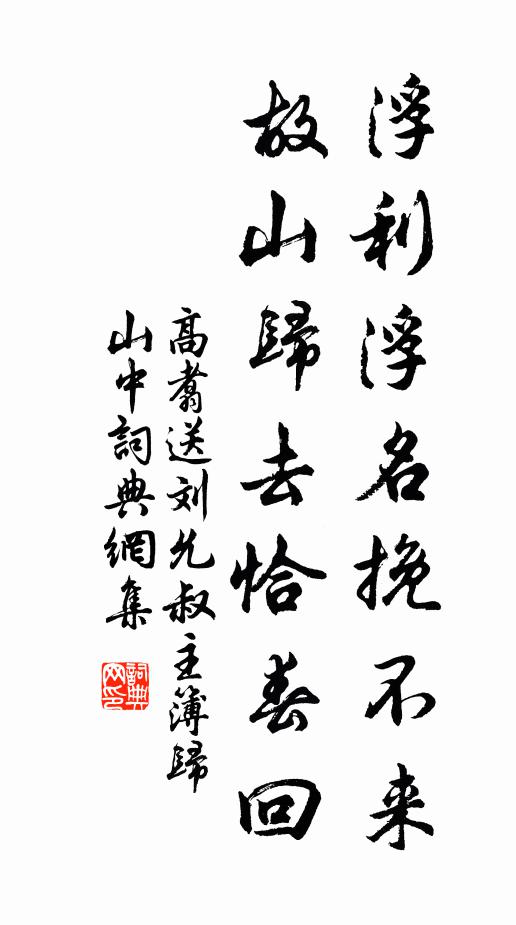 浮利浮名挽不来
故山歸去恰春回
高翥送刘允叔主簿歸
山中詞典網集
詞典
网印